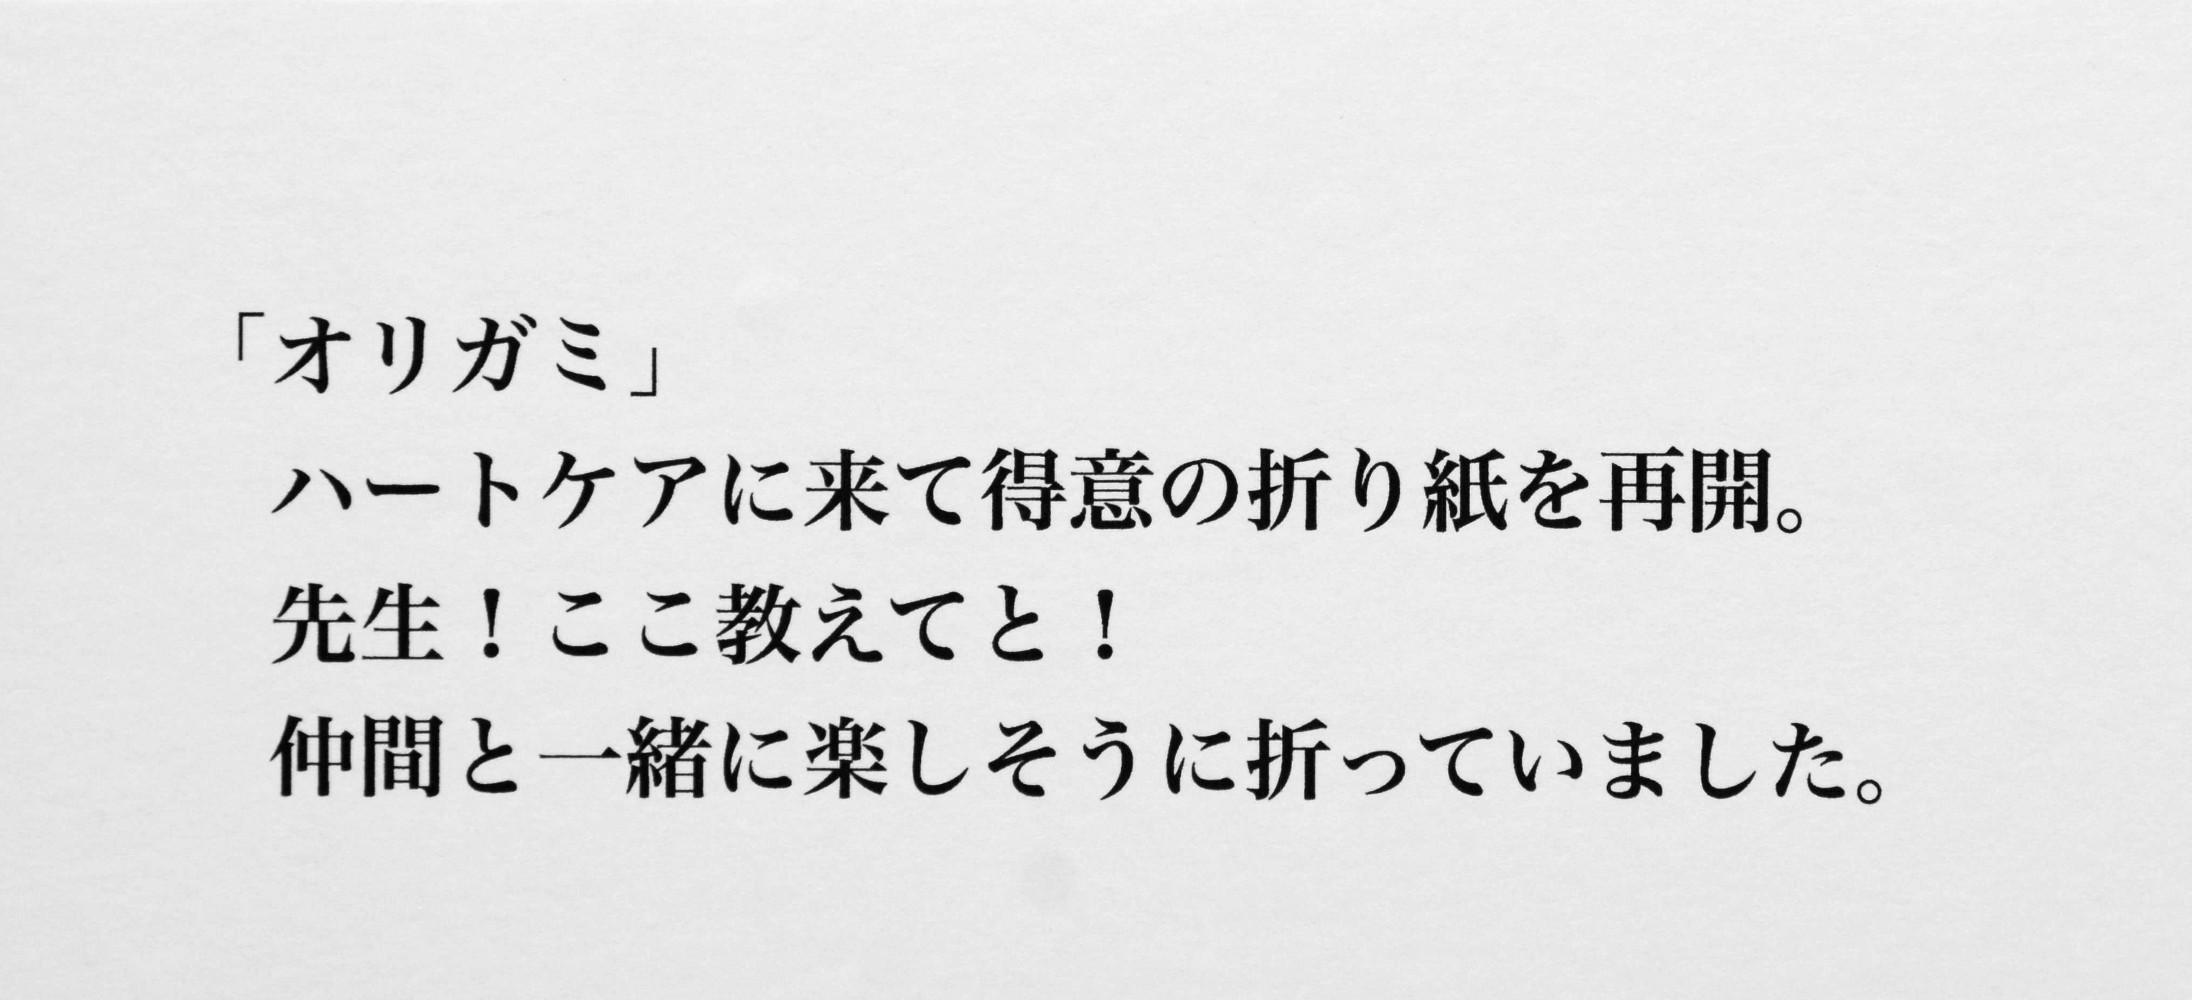 「オリガミ」
ハートケアに来て得意の折り紙を再開。
先生！ここ教えてと！
仲間と一緒に楽しそうに折っていました。